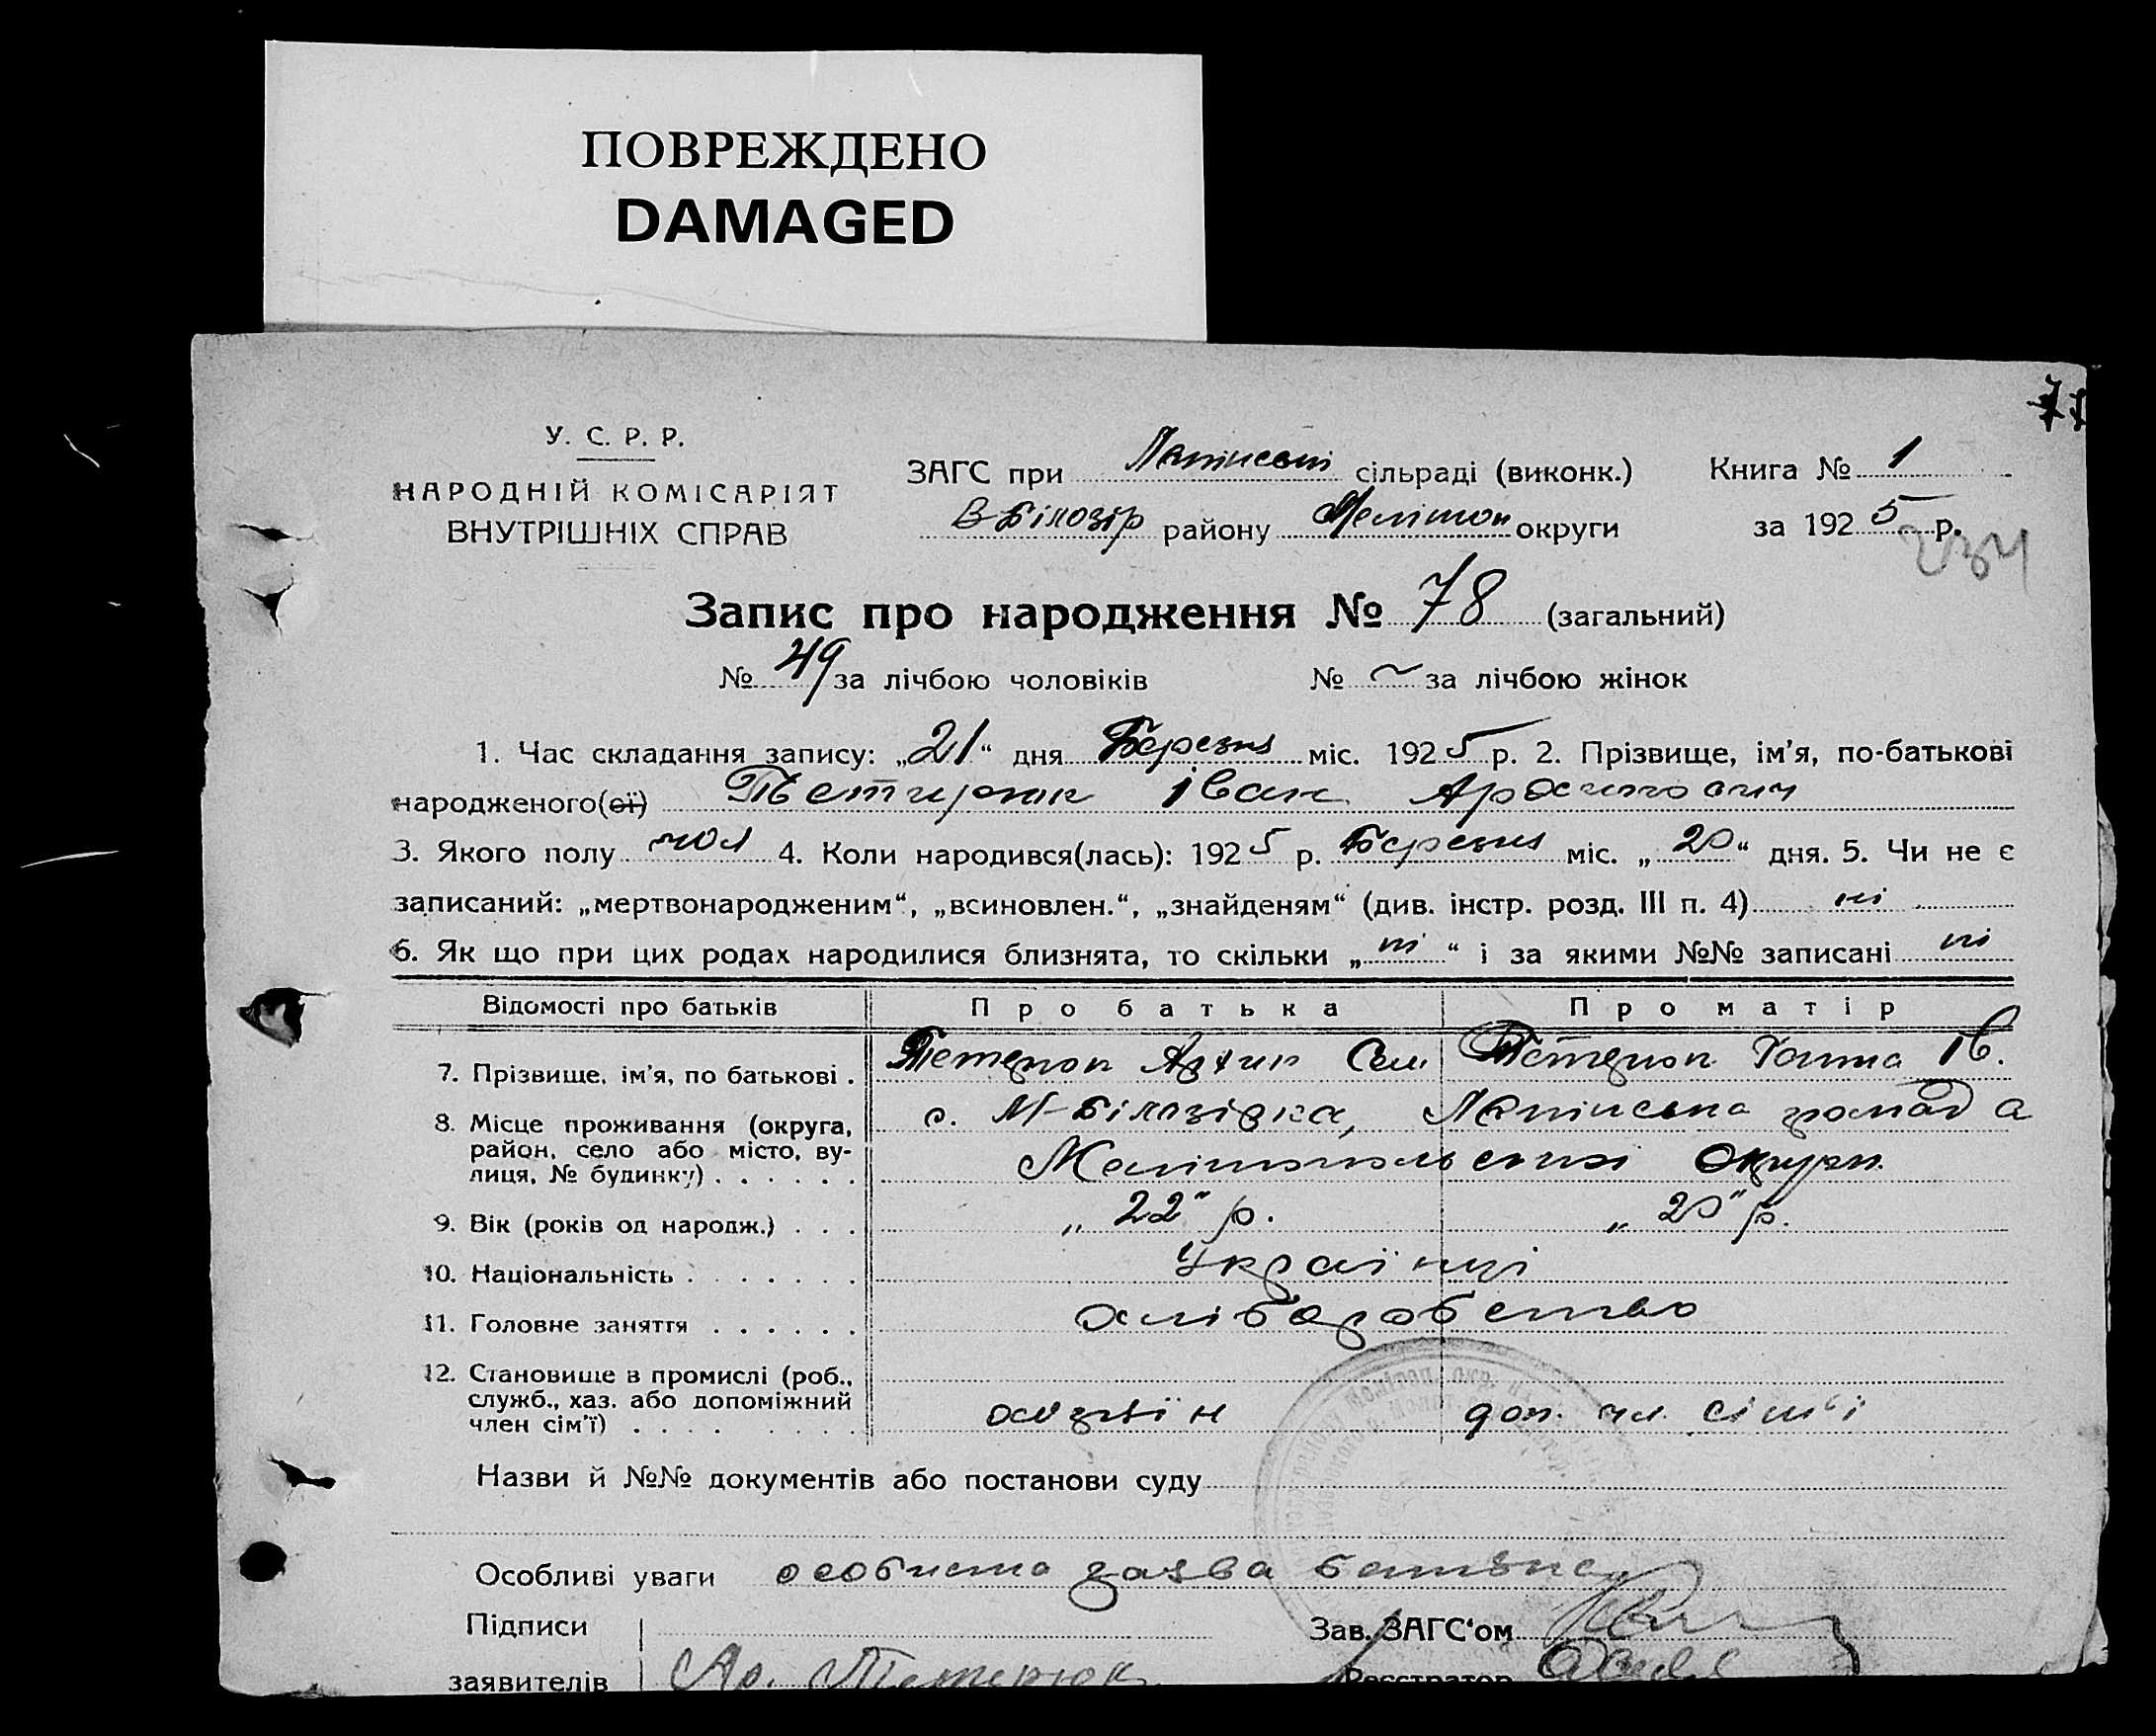 ПОВРЕЖДЕНО
DAMAGED
У. С. Р. Р.
НАРОДНІЙ КОМІСАРІЯТ
ВНУТРІШНІХ СПРАВ
ЗАГС при сільраді (виконк.) Книга № 1
В-Білозір району Мелітоп округи за 1925 р.
234
Запис про народження № 78 (загальний)
№ 49 за лічбою чоловіків № ~ за лічбою жінок
1. Час складання запису: „21“ дня Березня міс. 1925 р. 2. Прізвище, ім’я, по-батькові
народженого(ої) Іван
3. Якого полу чол 4. Коли народився(лась): 1925 р. Березня міс. „20“ дня. 5. Чи не є
записаний: „мертвонародженим“, „всиновлен.“, „знайденям“ (див. інстр. розд. III п. 4) ні
6. Як що при цих родах народилися близнята, то скільки „ні“ і за якими №№ записані ні
Відомості про батьків Про батька Про матір
7. Прізвище, ім’я, по батькові . Ганна Ів.
8. Місце проживання (округа, с. М-Білозірка, громада
район, село або місто, ву- Мелітопольської Округи
лиця, № будинку) . . . . . .
9. Вік (років од народж.) . . . „22“ р. „20“ р.
10. Національність . . . . . . . Українці
11. Головне заняття . . . . . . хліборобство
12. Становище в промислі (роб.,
служб., хаз. або допоміжний
член сім’ї) . . . . . . . . хазяїн доп. чл. сім'ї
Назви й №№ документів або постанови суду
Особливі уваги особиста заява батька
Підписи Зав. ЗАГС‘ом
заявителів Ар. Тетерюк Реєстратор